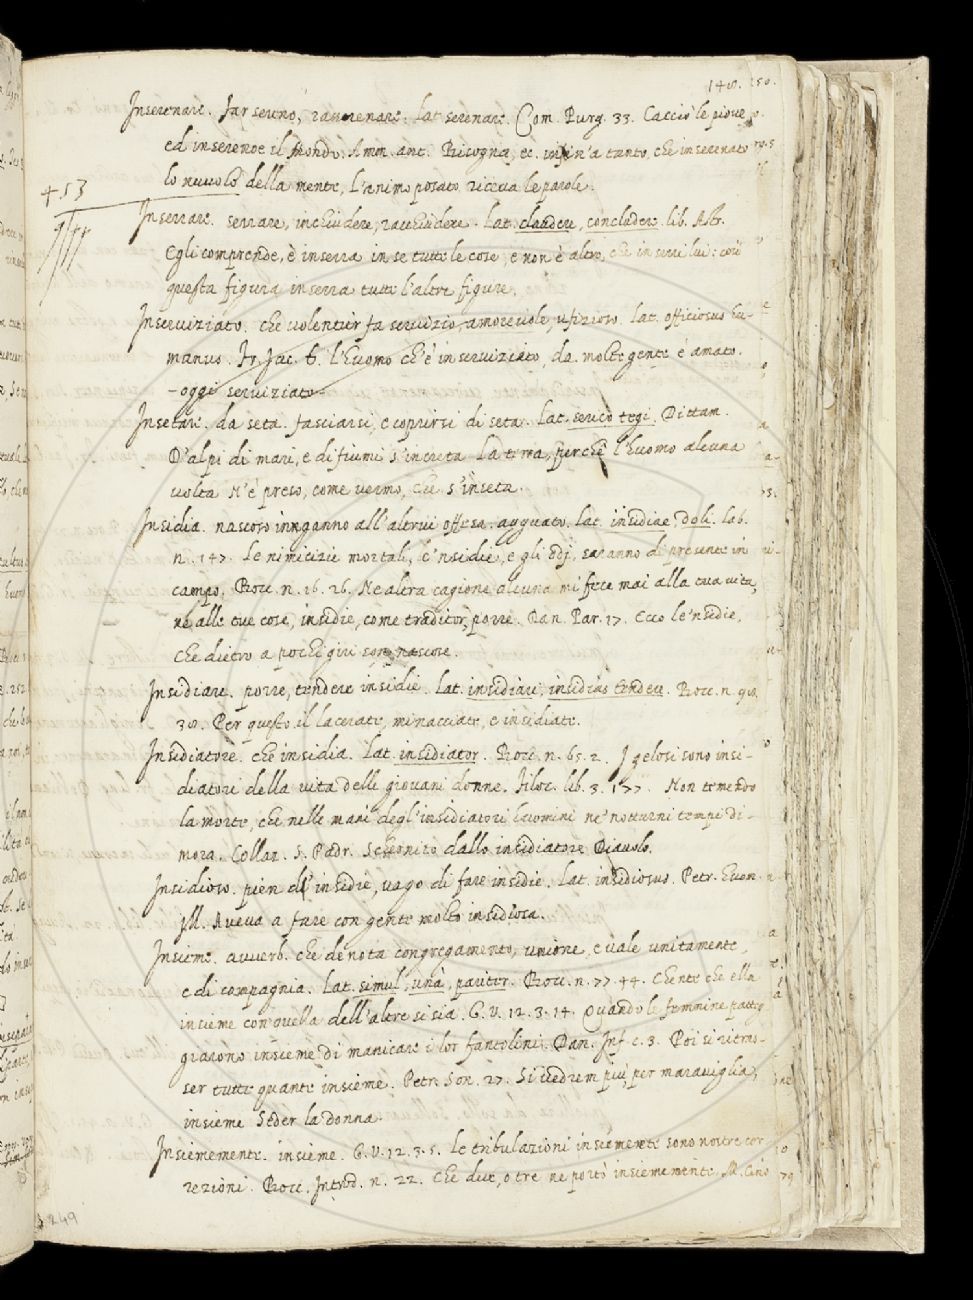 150.
Inserenare. far sereno, rasserenare. Lat. serenare. Com. Purg. 33. Cacciò le piove,
ed inserenoe il Mondo. Amm. ant. Bisogna, ec. infin'a tanto, che inserenato
lo nuvolo della mente, l'animo posato riceva le parole.
453
Inserrare. serrare, inchiudere, racchiudere. Lat. claudere, concludere. lib. Astr.
Egli comprende, è inserra in se tutte le cose, e non è altro, che inserri lui: così
questa figura inserra tutte l'altre figure.
Inserviziato. che volentier fa servizio, amorevole, ufizioso. Lat. officiosus hu-
manus. Fr. Jac. T. l'huomo ch'è inserviziato, da molte gente è amato.
- oggi serviziato -
Insetare. da seta. fasciarsi, e coprirsi di seta. Lat. serico tegi. Dittam.
D'alpi di mari, e di fiumi s'increta La terra, perché l'huomo alcuna
volta N'è preso, come vermo, che s'inseta.
Insidia. nascoso innganno all'altrui offesa. agguato. Lat. insidiae, doli. Lab.
n. 147. Le nimicizie mortali, e'nsidie, e gli odj, saranno di presente in
campo. Bocc. n. 16. 26. Ne altra cagione alcuna mi fece mai alla tua vita,
ne alle tue cose, insidie, come traditor, porre. Dan. Par. 17. Ecco le'nsidie,
che dietro a pochi giri son nascose.
Insidiare. porre, tendere insidie. Lat. insidiari, insidias tendere. Bocc. n. 98.
38. Per questo il lacerate, minacciate, e insidiate.
Insidiatore. che insidia. Lat. insidiator. Bocc. n. 65. 2. I gelosi sono insi-
diatori della vita delle giovani donne. Filoc. lib. 3. 177. Non temendo
la morte, che nelle mani degl'insidiatori huomini ne' notturni tempi di-
mora. Collaz. S. Padr. Schernito dallo insidiatore Diavolo.
Insidioso. pien d'insidie, vago di fare insidie. Lat. insidiosus. Petr. huom.
Ill. Aveva a fare con gente molto insidiosa.
Insieme. avverb. che denota congregamento, unione, e vale unitamente,
e di compagnia. Lat. simul, unà, pariter. Bocc. n. 77. 44. Chente che ella
insieme con quella dell'altre si sia. G. V. 12. 3. 14. Quando le femmine patteg
giarono insieme di manicare i lor fantolini. Dan. Inf. c. 3. Poi si ritras-
ser tutte quante insieme. Petr. Son. 27. Sì vedrem poi, per maraviglia,
insieme Seder la donna.
Insiememente. insieme. G. V. 12. 3. 5. Le tribulazioni insiememente sono nostre cor
rezioni. Bocc. Introd. n. 22. Che due, o tre ne portò insiememente. M. Cino
249